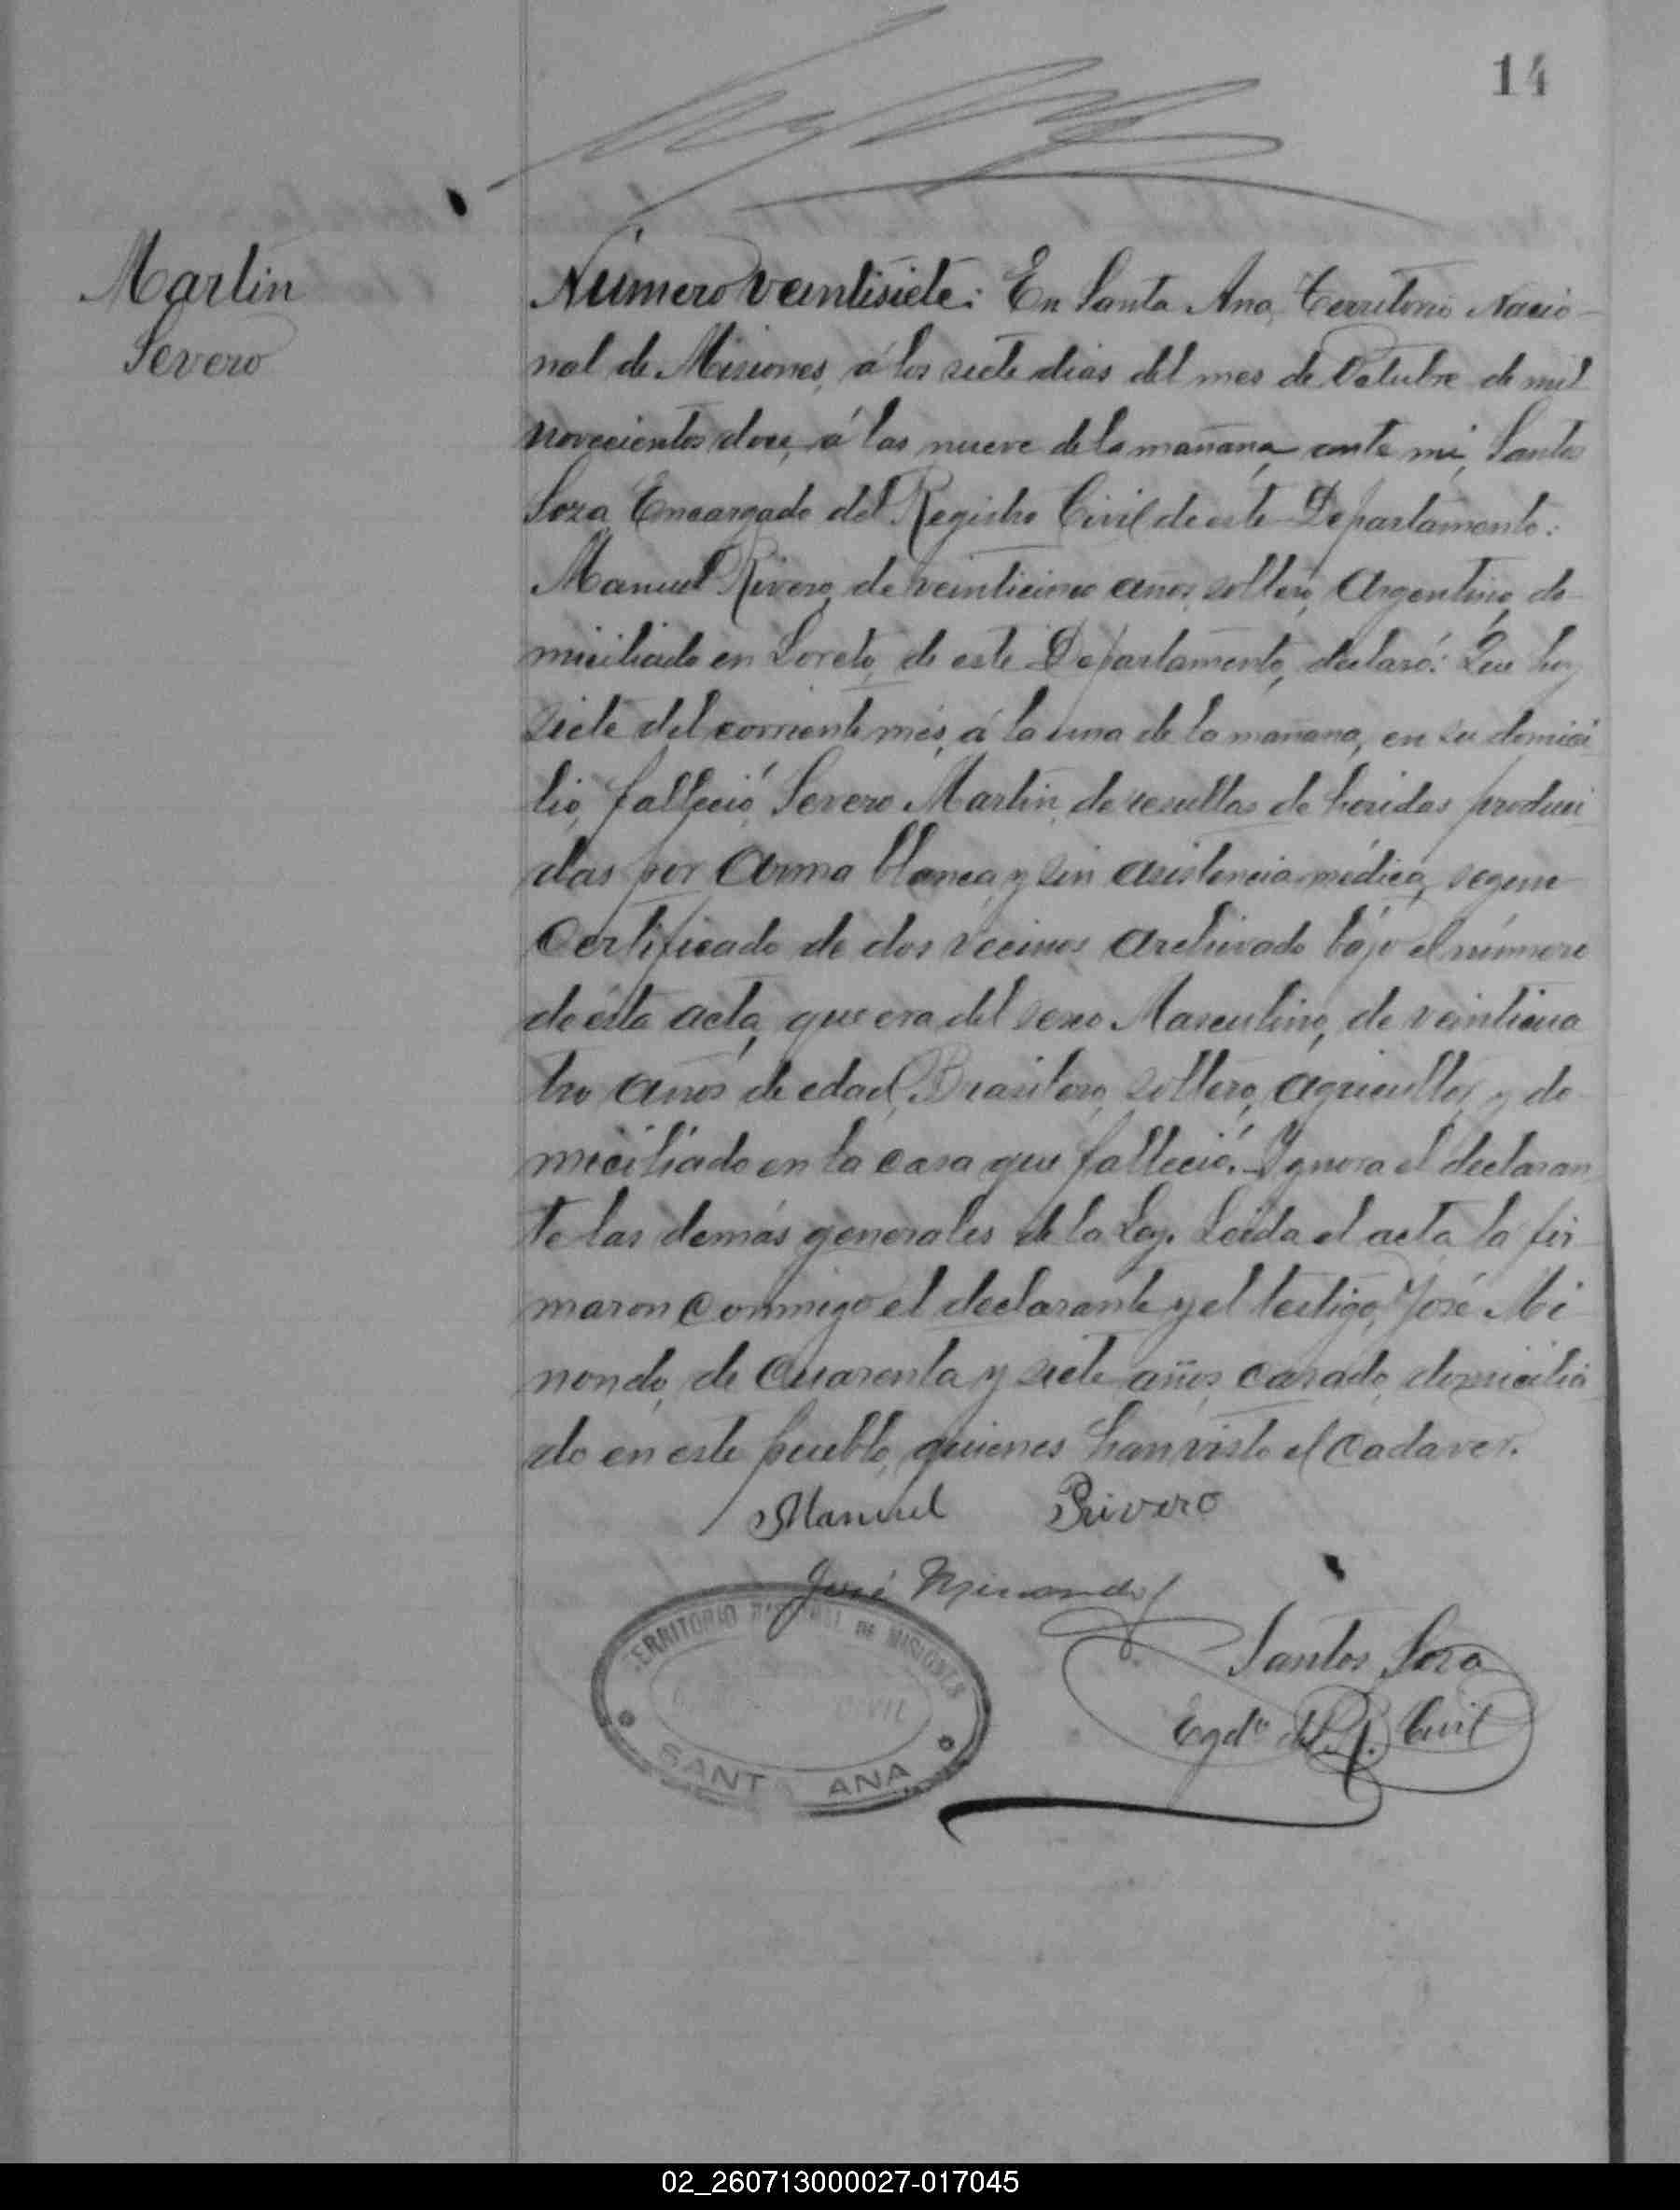 14
Martin
Severo
Número veintisiete: En Santa Ana, Territorio Nacio-
nal de Misiones, á los siete dias del mes de Octubre de mil
novecientos doce, á las nueve de la mañana, ante mi, Santos
Soza, Encargado del Registro Civil de este Departamento:
Manuel Rivero, de veinticinco años, soltero, Argentino, do-
miciliado en Loreto, de este Departamento, declaró: Que hoy
siete del corriente més, á la una de la mañana, en su domici
lio, falleció Severo Martin, de resultas de heridas produci
das por arma blanca, y sin asistencia médica, segun
Certificado de dos vecinos archivado bájo el número
de ésta acta, que era del sexo Masculino, de veinticua
tro años de edad, Brasilero, soltero, agricultor, y do-
miciliado en la casa que falleció. Ygnora el declaran
te las demás generales de la Ley. Leida el acta la fir
maron conmigo el declarante y el testigo, José Mi
nondo, de cuarenta y siete años, casado, domicilia
do en este pueblo, quienes han visto el cadaver.
Manuel Rivero
José Minondo
Santos Soza
Egdo del R. Civil
TERRITORIO NACIONAL DE MISIONES
CIVIL
SANTA ANA
02_260713000027-017045